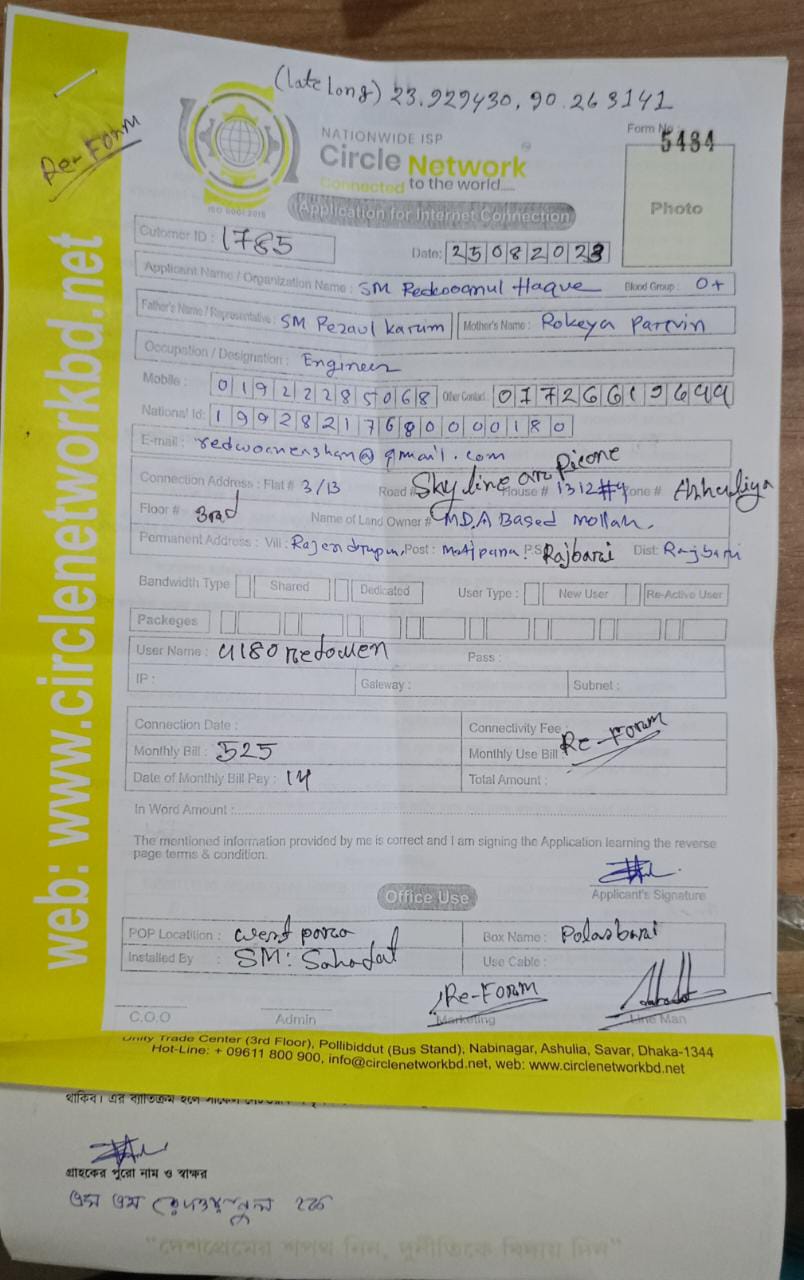 (late long) 23.929430, 90.263141
Re-Form
NATIONWIDE ISP
Circle Network
Connected to the world....
ISO 9001:2015
Form No 5484
Photo
Application for Internet Connection
Cutomer ID : 1785
Date: 25082023
Applicant Name / Organization Name : SM Redwoanul Haque Blood Group : O+
Father's Name / Representative : SM Rezaul Karim Mother's Name : Rokeya Parvin
Occupation / Designation : Engineer
Mobile : 01922285068 Other Contact :
National Id: 19928217680000180
E-mail : @ gmail.com
Connection Address : Flat # 3/B Road # Skyline House # 1312#4 Zone # Ashuliya
Floor # 3rd Name of Land Owner # MD.A Based Mollah.
Permanent Address : Vill : Rajendrapur, Post : P.S Rajbari Dist: Rajbari
Bandwidth Type Shared Dedicated User Type : New User Re-Active User
Packeges
User Name : 4180 redowen Pass :
IP : Gateway : Subnet :
Connection Date : Connectivity Fee :
Monthly Bill : 525 Monthly Use Bill : Re-Foram
Date of Monthly Bill Pay : 14 Total Amount :
In Word Amount :
The mentioned information provided by me is correct and I am signing the Application learning the reverse
page terms & condition.
Applicant's Signature
Office Use
POP Locatition : west para Box Name : Polasbari
Installed By : SM: Sahadat Use Cable :
Re-Foram
C.O.O Admin Marketing Line Man
Unity Trade Center (3rd Floor), Pollibiddut (Bus Stand), Nabinagar, Ashulia, Savar, Dhaka-1344
Hot-Line: + 09611 800 900, info@circlenetworkbd.net, web: www.circlenetworkbd.net
web: www.circlenetworkbd.net
থাকিব। এর ব্যতিক্রম হলে
গ্রাহকের পুরো নাম ও স্বাক্ষর
এস এম রেদওয়ানুল হক
"দেশপ্রেমের শপথ নিন, দুর্নীতিকে বিদায় দিন"